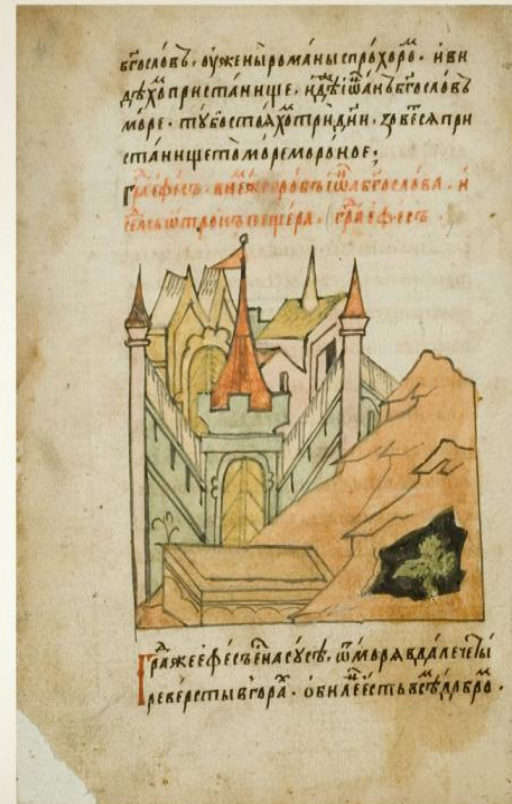 бг҃ословъ. оу жены романы с прохоро м̑. и ви
дѣхо м̑ пристанище. идѣ іѡ҃анъ бг҃ословъ
море. ту бо стояхо м̑ три дн҃и. зовется при
станище то море мороное:
гра д̑ ефесъ. в не м̑ же гробъ іѡ҃а бг҃ослова. и
се д̑мь ѿтрокъ пещера. гра д̑ ефесъ.
Гра д̑ же ефесъ е с̑ на сусѣ. ѿ моря вдалече четы
ре версты в гора х̑. обиле н̑ есть все м̑ добро м̑.